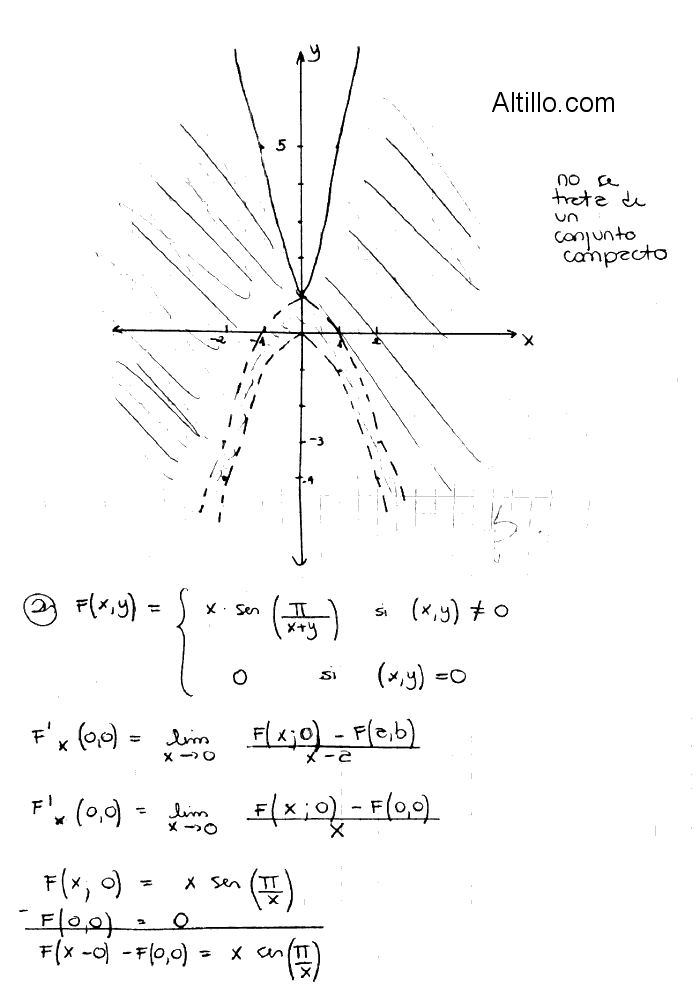 y
Altillo.com
5
no se
trata de
un
conjunto
compacto
-2 -1 1 2 x
-3
-4
2) F(x,y) = { x · sen (π/(x+y)) si (x,y) ≠ 0
0 si (x,y) = 0
F'x (0,0) = lim x→0 (F(x;0) - F(a,b))/(x-a)
F'x (0,0) = lim x→0 (F(x;0) - F(0,0))/x
F(x; 0) = x sen (π/x)
- F(0,0) = 0
F(x-0) - F(0,0) = x sen (π/x)